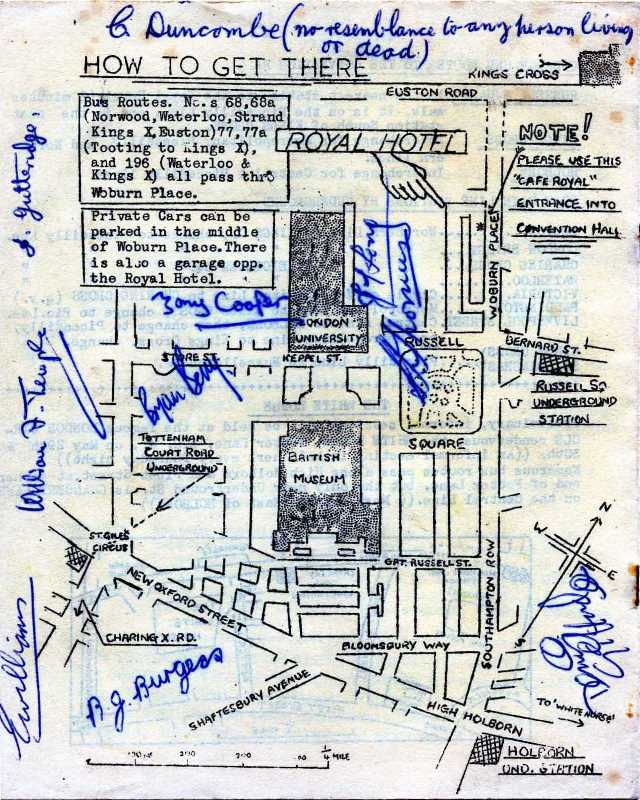 C. Duncombe (no resemblance to any person living
or dead)
HOW TO GET THERE
KINGS CROSS
EUSTON ROAD
Bus Routes. No.s 68,68a
(Norwood,Waterloo,Strand
Kings X,Euston)77,77a
(Tooting to Kings X),
and 196 (Waterloo &
Kings X) all pass thro
Woburn Place.
ROYAL HOTEL
NOTE!
PLEASE USE THIS
"CAFE ROYAL"
ENTRANCE INTO
CONVENTION HALL
Private Cars can be
parked in the middle
of Woburn Place.There
is also a garage opp.
the Royal Hotel.
WOBURN PLACE
Gutteridge.
Tony Cooper
LONDON
UNIVERSITY
RUSSELL
BERNARD ST.
STORE ST.
KEPPEL ST.
RUSSELL SQ
UNDERGROUND
STATION
William F. Temple
TOTTENHAM
COURT ROAD
UNDERGROUND
SQUARE
BRITISH
MUSEUM
N
W
E
ST. GILES
CIRCUS
GRT. RUSSELL ST.
NEW OXFORD STREET
SOUTHAMPTON ROW
CHARING X. RD.
BLOOMSBURY WAY
E Williams
B. J. Burgess
SHAFTESBURY AVENUE
HIGH HOLBORN
TO 'WHITE HORSE'
HOLBORN
UND. STATION
¼ MILE